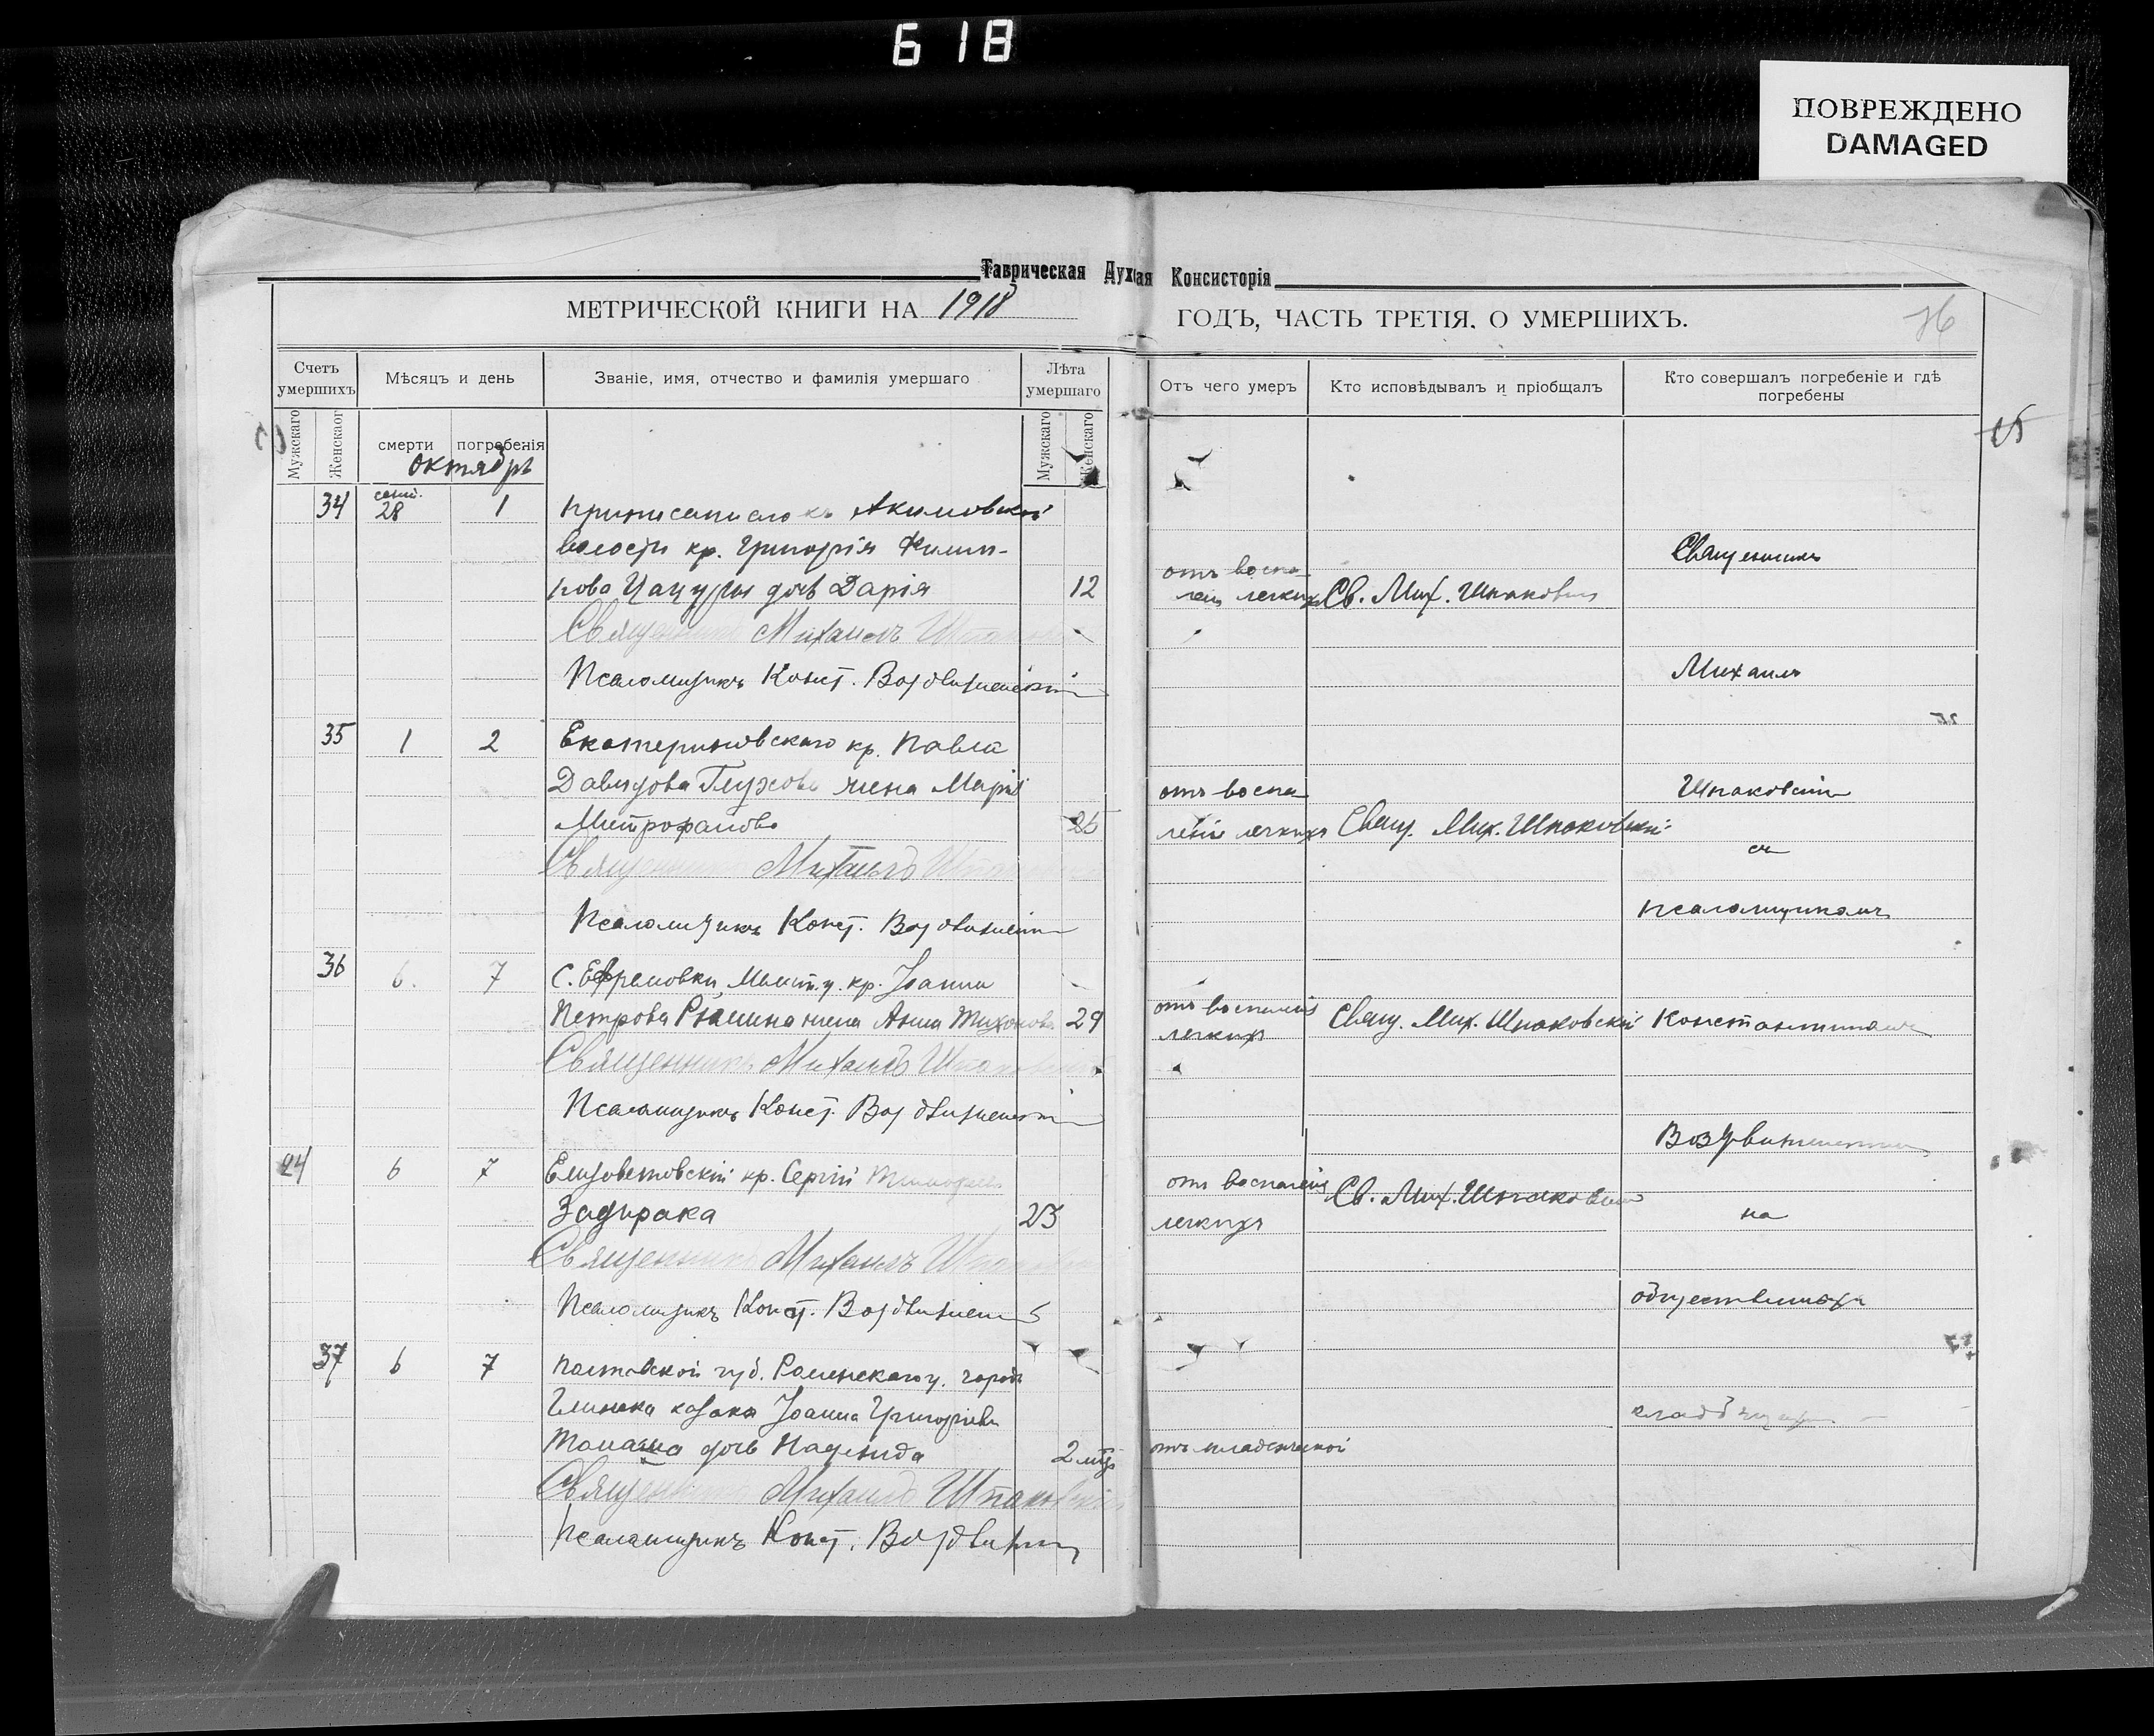 618
ПОВРЕЖДЕНО
DAMAGED
Таврическая Духая Консисторія
МЕТРИЧЕСКОЙ КНИГИ НА 1918
ГОДЪ, ЧАСТЬ ТРЕТІЯ. О УМЕРШИХЪ.
Счетъ умершихъ
Мужскаго
Женскаог
Мѣсяцъ и день
смерти
погребенія
Званіе, имя, отчество и фамилія умершаго
Лѣта умершаго
Мужскаго
Женскаго
Отъ чего умеръ
Кто исповѣдывалъ и пріобщалъ
Кто совершалъ погребеніе и гдѣ
погребены
октябрь
15
34 сент. 28 1 Акимовской
волости кр. Григорія Филип-
пова дочь Дарія 12
отъ воспа-
легкихъ Св. Мих. Шпаковскій
Священникъ Михаилъ
Псаломщикъ Конст. Воздвиженскій
35 1 2 Екатериновскаго кр. Павла
Давидова Глухова жена Марія
Митрофанова 25
отъ воспа-
леніе легкихъ Свящ. Мих. Шпаковскій
Священникъ Михаилъ
Псаломщикъ Конст. Воздвиженскій
36 6. 7 С. Ефремовки, Мелит. у. кр. Іоанна
Петрова жена Анна Тихонова 29
отъ воспаленія
легкихъ Свящ. Мих. Шпаковскій
Священникъ Михаилъ Шпаковскій
Псаломщикъ Конст. Воздвиженскій
24 6 7 Елизаветовскій кр. Сергій
Задирака 23
отъ воспаленія
легкихъ Св. Мих. Шпаковскій
Священникъ Михаилъ
Псаломщикъ Конст. Воздвиженскій
37 6 7 Полтавской губ. Роменскаго у. города
Глинска козака Іоанна Григоріева
дочь Надежда 2 мѣс
отъ младенческой
Священникъ Михаилъ Шпаковскій
Псаломщикъ Конст. Воздвиженскій
Священникъ
Михаилъ
Шпаковскій
съ
псаломщикомъ
Константиномъ
Воздвиженскимъ
на
общественномъ
кладбищѣ